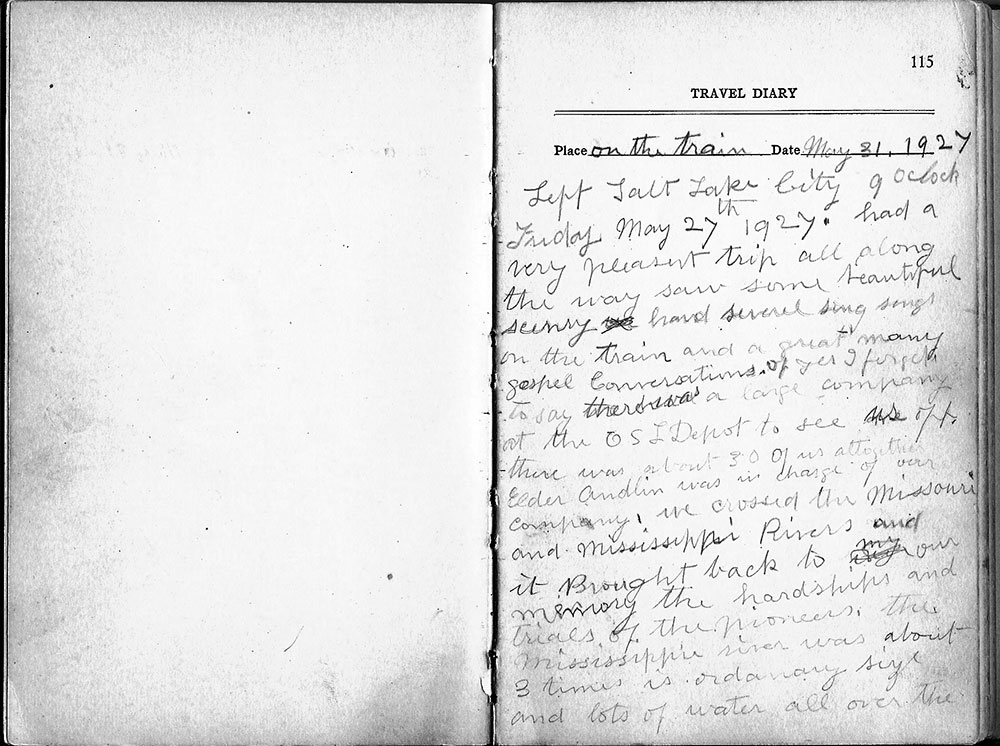 115
TRAVEL DIARY
Place on the train Date May 31, 1927
Left Salt Lake City 9 oclock
Friday May 27th 1927. had a
very pleasent trip all along
the way saw some beautifull
seenry had severel sing songs
on the train and a great many
gospel Conversations. O yes I forget
to say there was a large company
at the O S L Depot to see us off.
there was about 30 of us altogether
Elder Andlin was in charge of our
company, we crossed the Missouri
and Mississippi Rivers and
it Brought back to our
memory the hardships and
trials of the pioneers. the
Mississippie river was about
3 times is ordanary size
and lots of water all over the